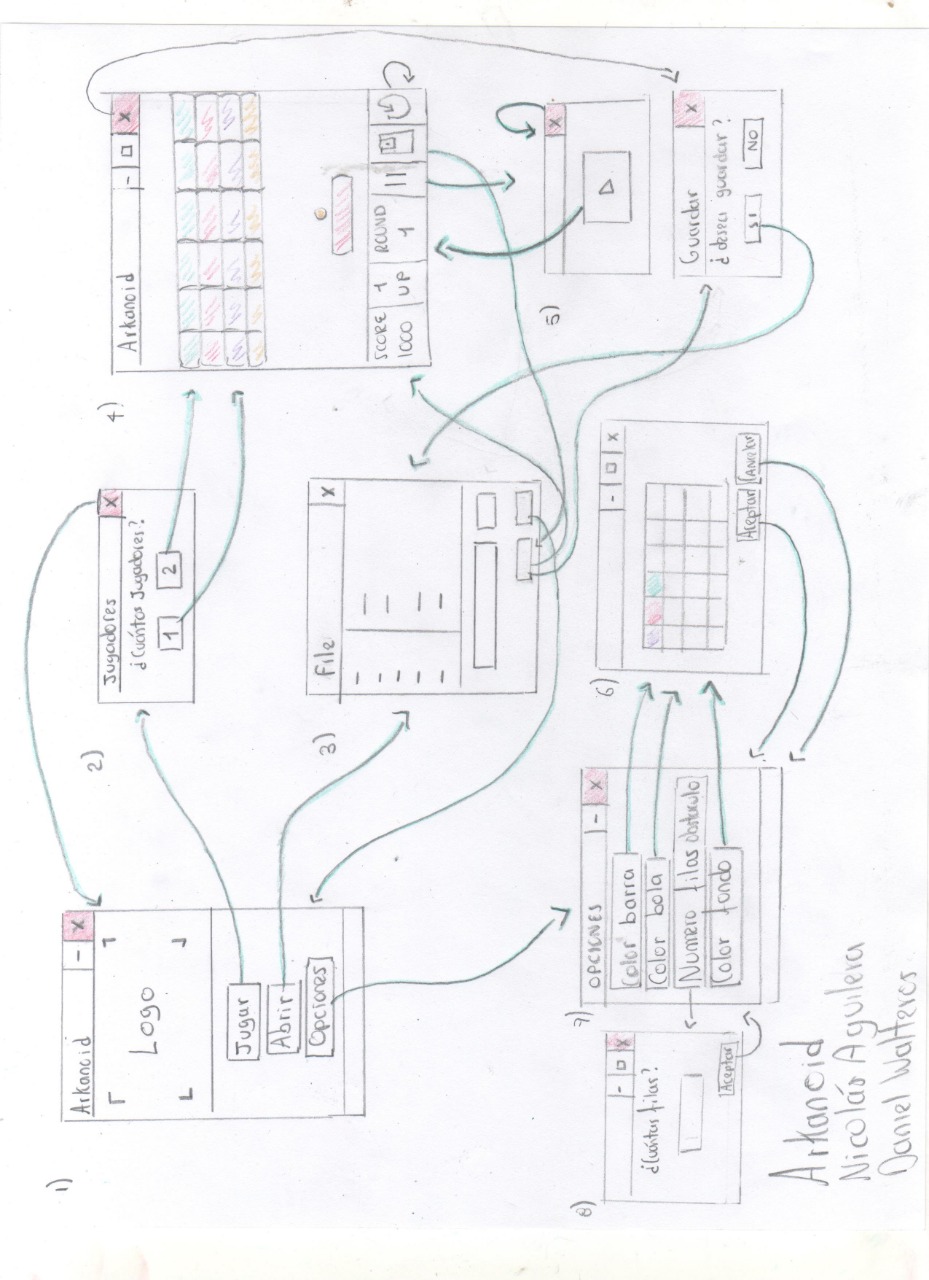 1)
Arkanoid - X
Logo
Jugar
Abrir
Opciones
2)
Jugadores X
¿Cuántos Jugadores?
1 2
3)
File X
4)
Arkanoid - X
SCORE 1 ROUND
1000 UP 1
5)
X
Guardar X
¿desea guardar?
SI NO
6)
- X
Aceptar Cancelar
7)
OPCIONES - X
Color barra
Color bola
Numero filas obstaculo
Color fondo
8)
- X
¿Cuántas filas?
Aceptar
Arkanoid
Nicolás Aguilera
Daniel Walteros